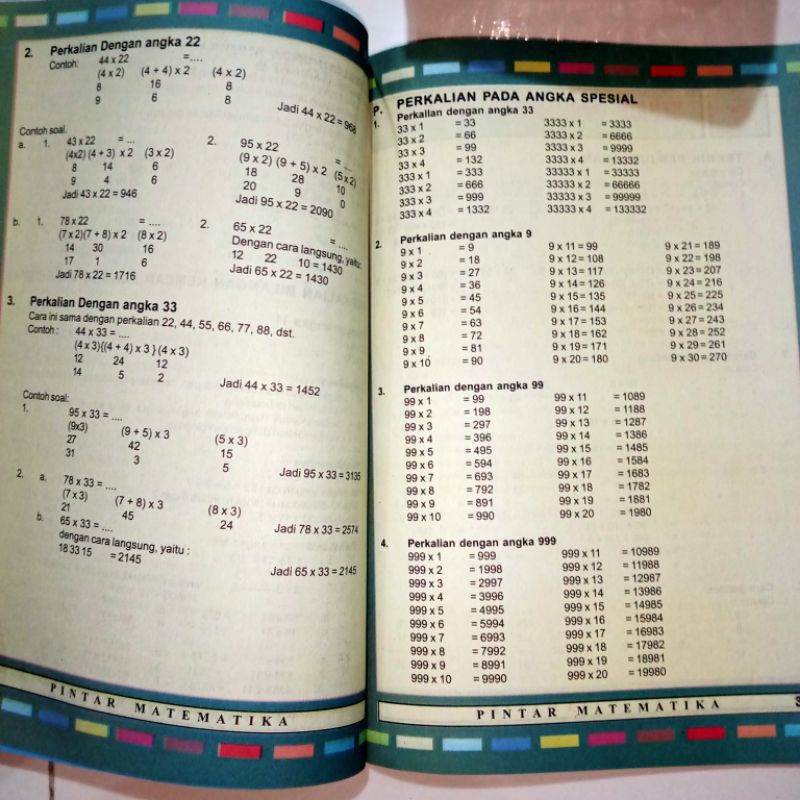 2. Perkalian Dengan angka 22
Contoh: 44 x 22 =....
(4 x 2) (4 + 4) x 2 (4 x 2)
8 16 8
9 6 8
Jadi 44 x 22 = 968
Contoh soal.
a. 1. 43 x 22 = ...
(4x2) (4 + 3) x 2 (3 x 2)
8 14 6
9 4 6
Jadi 43 x 22 = 946
2. 95 x 22 = ..
(9 x 2) (9 + 5) x 2 (5 x 2)
18 28 10
20 9 0
Jadi 95 x 22 = 2090
b. 1. 78 x 22 = ....
(7 x 2)(7 + 8) x 2 (8 x 2)
14 30 16
17 1 6
Jadi 78 x 22 = 1716
2. 65 x 22 = ....
Dengan cara langsung, yaitu:
12 22 10 = 1430
Jadi 65 x 22 = 1430
3. Perkalian Dengan angka 33
Cara ini sama dengan perkalian 22, 44, 55, 66, 77, 88, dst.
Contoh : 44 x 33 = ....
(4 x 3){(4 + 4) x 3 } (4 x 3)
12 24 12
14 5 2
Jadi 44 x 33 = 1452
Contoh soal:
1. 95 x 33 = ....
(9x3) (9 + 5) x 3 (5 x 3)
27 42 15
31 3 5
Jadi 95 x 33 = 3135
2. a. 78 x 33 = ....
(7 x 3) (7 + 8) x 3 (8 x 3)
21 45 24
Jadi 78 x 33 = 2574
b. 65 x 33 = ....
dengan cara langsung, yaitu :
18 33 15 = 2145
Jadi 65 x 33 = 2145
PINTAR MATEMATIKA
P. PERKALIAN PADA ANGKA SPESIAL
1. Perkalian dengan angka 33
33 x 1 = 33 3333 x 1 = 3333
33 x 2 = 66 3333 x 2 = 6666
33 x 3 = 99 3333 x 3 = 9999
33 x 4 = 132 3333 x 4 = 13332
333 x 1 = 333 33333 x 1 = 33333
333 x 2 = 666 33333 x 2 = 66666
333 x 3 = 999 33333 x 3 = 99999
333 x 4 = 1332 33333 x 4 = 133332
2. Perkalian dengan angka 9
9 x 1 = 9 9 x 11 = 99 9 x 21 = 189
9 x 2 = 18 9 x 12 = 108 9 x 22 = 198
9 x 3 = 27 9 x 13 = 117 9 x 23 = 207
9 x 4 = 36 9 x 14 = 126 9 x 24 = 216
9 x 5 = 45 9 x 15 = 135 9 x 25 = 225
9 x 6 = 54 9 x 16 = 144 9 x 26 = 234
9 x 7 = 63 9 x 17 = 153 9 x 27 = 243
9 x 8 = 72 9 x 18 = 162 9 x 28 = 252
9 x 9 = 81 9 x 19 = 171 9 x 29 = 261
9 x 10 = 90 9 x 20 = 180 9 x 30 = 270
3. Perkalian dengan angka 99
99 x 1 = 99 99 x 11 = 1089
99 x 2 = 198 99 x 12 = 1188
99 x 3 = 297 99 x 13 = 1287
99 x 4 = 396 99 x 14 = 1386
99 x 5 = 495 99 x 15 = 1485
99 x 6 = 594 99 x 16 = 1584
99 x 7 = 693 99 x 17 = 1683
99 x 8 = 792 99 x 18 = 1782
99 x 9 = 891 99 x 19 = 1881
99 x 10 = 990 99 x 20 = 1980
4. Perkalian dengan angka 999
999 x 1 = 999 999 x 11 = 10989
999 x 2 = 1998 999 x 12 = 11988
999 x 3 = 2997 999 x 13 = 12987
999 x 4 = 3996 999 x 14 = 13986
999 x 5 = 4995 999 x 15 = 14985
999 x 6 = 5994 999 x 16 = 15984
999 x 7 = 6993 999 x 17 = 16983
999 x 8 = 7992 999 x 18 = 17982
999 x 9 = 8991 999 x 19 = 18981
999 x 10 = 9990 999 x 20 = 19980
PINTAR MATEMATIKA